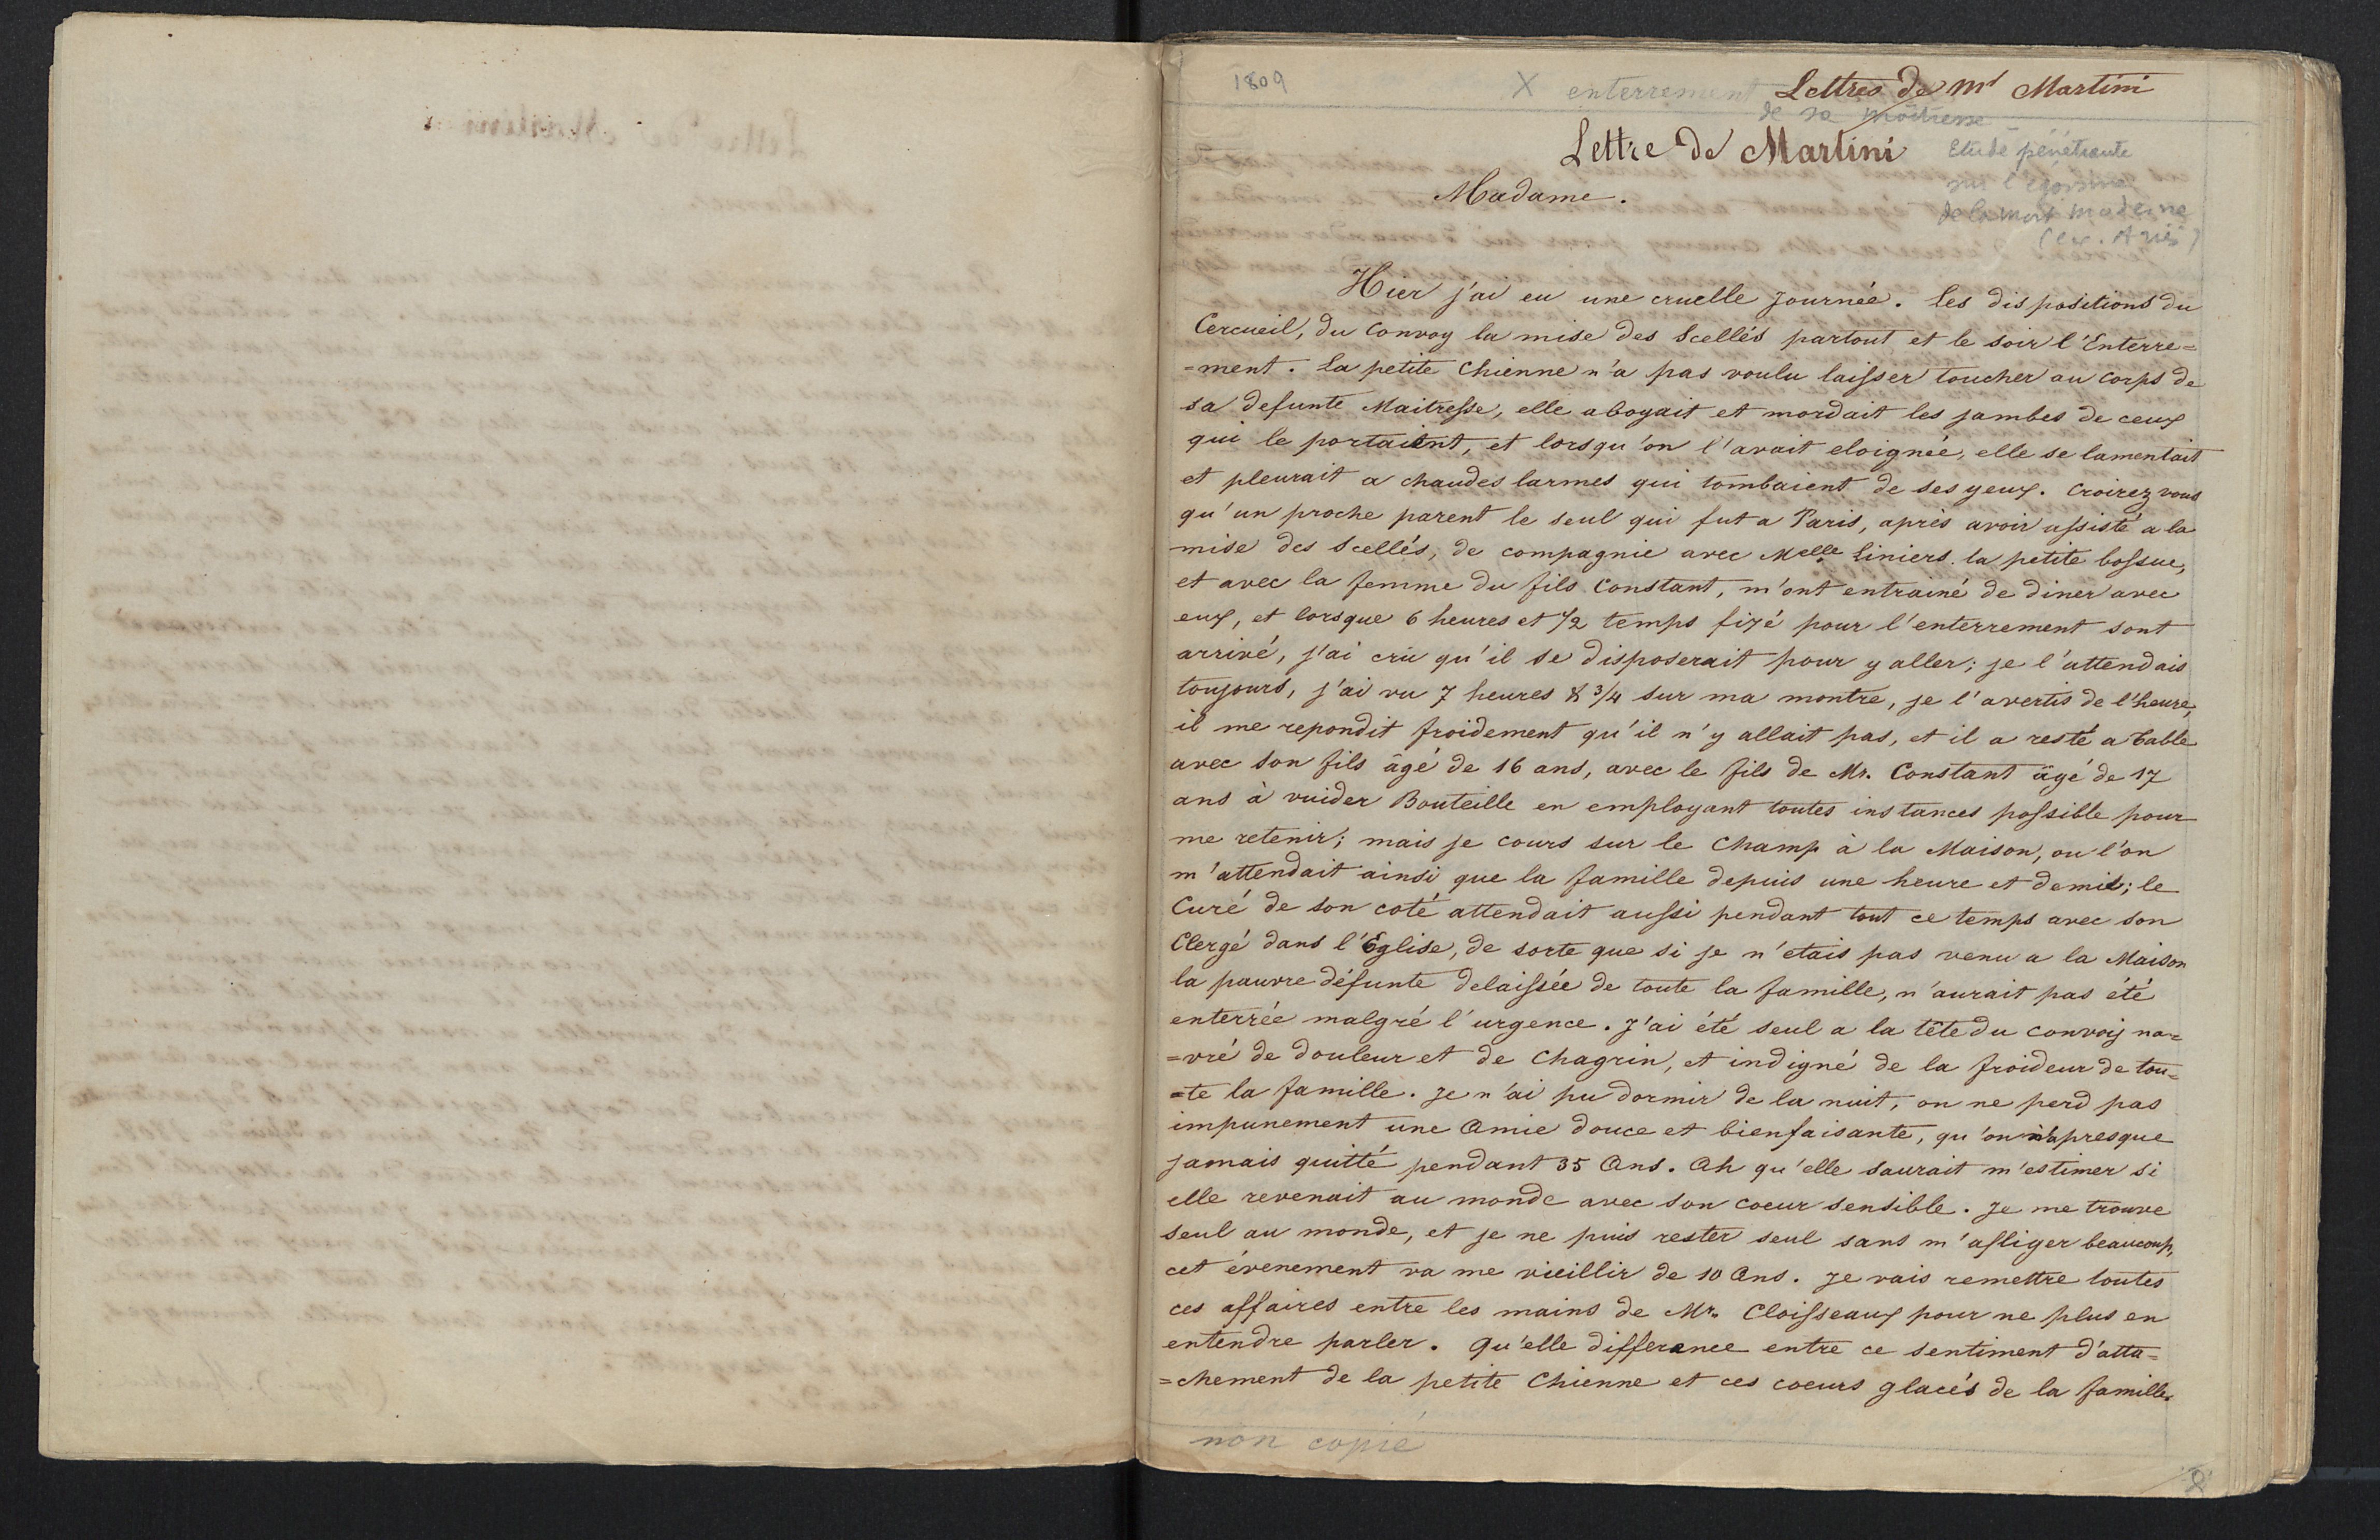 1809
X enterrement Lettres de Mr Martini
de sa maîtresse
Lettre de Martini
Etude pénétrante
sur l'égoïsme
de la mort moderne
(cx. Ariès)
Madame.
Hier j'ai eu une cruelle journée. les dispositions du
Cercueil, du Convoy la mise des Scellés partout et le soir l'Enterre=
=ment. La petite Chienne n'a pas voulu laisser toucher au corps de
sa defunte Maitresse, elle aboyait et mordait les jambes de ceux
qui le portaient, et lorsqu'on l'avait eloignée, elle se lamentait
et pleurait a chaudes larmes qui tombaient de ses yeux. Croirez vous
qu'un proche parent le seul qui fut a Paris, après avoir assisté a la
mise des Scellés, de compagnie avec Melle Liniers la petite bossue,
et avec la femme du fils Constant, m'ont entrainé de diner avec
eux, et lorsque 6 heures et 1/2 temps fixé pour l'enterrement sont
arrivé, j'ai crû qu'il se disposerait pour y aller; je l'attendais
toujours, j'ai vu 7 heures & 3/4 sur ma montre, je l'avertis de l'heure,
il me repondit froidement qu'il n'y allait pas, et il a resté a table
avec son fils âgé de 16 ans, avec le fils de Mr. Constant âgé de 17
ans à vuider Bouteille en employant toutes instances possible pour
me retenir; mais je cours sur le Champ à la Maison, ou l'on
m'attendait ainsi que la famille depuis une heure et demie; le
Curé de son coté attendait aussi pendant tout ce temps avec son
Clergé dans l'Eglise, de sorte que si je n'etais pas venu a la Maison
la pauvre défunte delaissée de toute la famille, n'aurait pas été
enterrée malgré l'urgence. J'ai été seul a la tête du convoij na=
=vré de douleur et de Chagrin, et indigné de la froideur de tou=
=te la famille. je n'ai pu dormir de la nuit, on ne perd pas
impunement une Amie douce et bienfaisante, qu'on n'a presque
jamais quitté pendant 35 Ans. Ah qu'elle saurait m'estimer si
elle revenait au monde avec son coeur sensible. Je me trouve
seul au monde, et je ne puis rester seul sans m'afliger beaucoup,
cet évenement va me vieillir de 10 Ans. je vais remettre toutes
ces affaires entre les mains de Mr. Cloisseaux pour ne plus en
entendre parler. Qu'elle differance entre ce sentiment d'atta=
=chement de la petite Chienne et ces coeurs glacés de la famille.
non copié